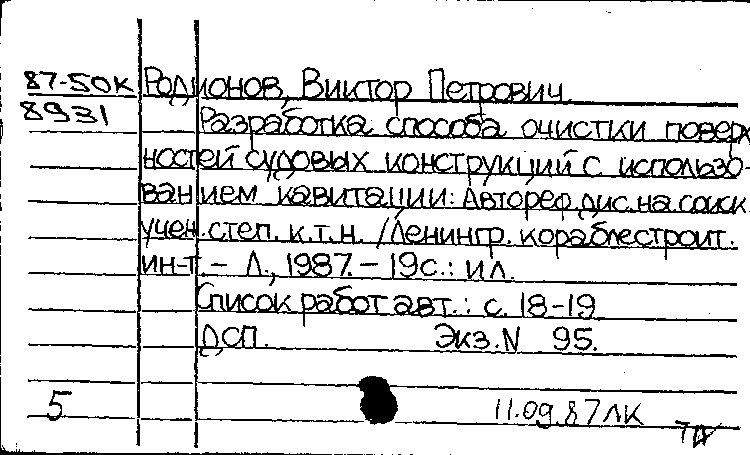 87-50К Родионов, Виктор Петрович
8931 Разработка способа очистки поверх
ностей судовых конструкций с использо-
ванием кавитации: Автореф. дис. на соиск
учен. степ. к.т.н. /Ленингр. кораблестроит.
ин-т. – Л., 1987. – 19с.: ил.
Список работ авт.: с. 18-19
ДСП. Экз. N 95.
5 11.09.87 ЛК